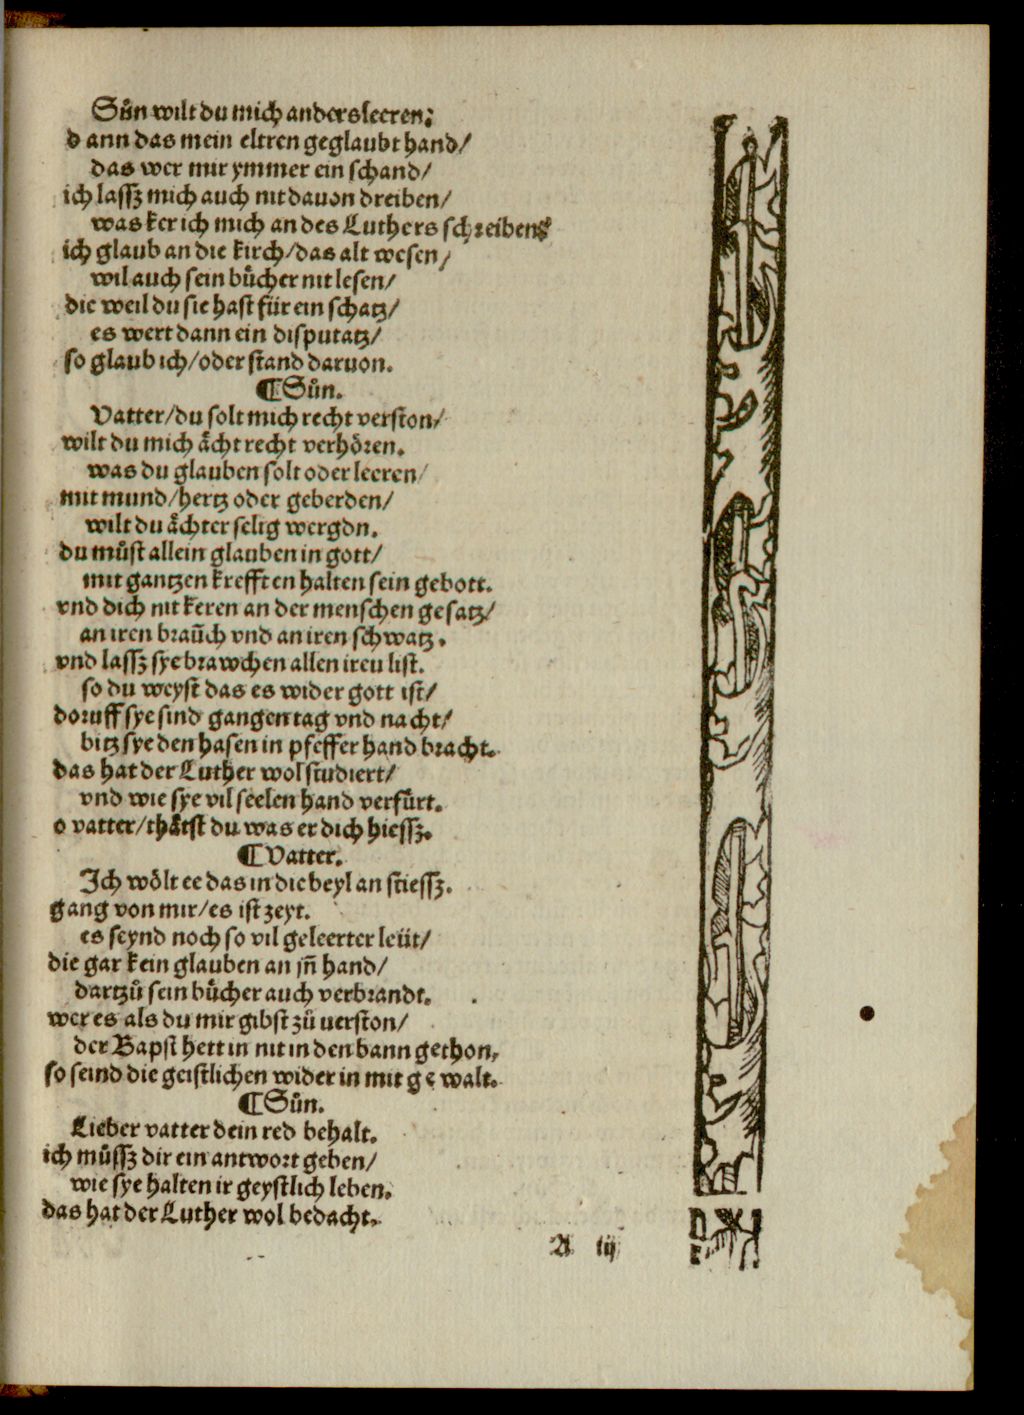 Sůn wilt du mich anders leeren;
dann das mein eltren geglaubt hand/
das wer mir ymmer ein schand/
ich lassz mich auch nit dauon dreiben/
was ker ich mich an des Luthers schreiben;
ich glaub an die kirch/das alt wesen/
wil auch sein bůcher nit lesen/
die weil du sie hast für ein schatz/
es wert dann ein disputatz/
so glaub ich/oder stand daruon.
¶Sůn.
Vatter/du solt mich recht verston/
wilt du mich aͤcht recht verhoͤren.
was du glauben solt oder leeren/
mit mund/hertz oder geberden/
wilt du aͤchter selig wergdn.
du můst allein glauben in gott/
mit gantzen krefften halten sein gebott.
vnd dich nit keren an der menschen gesatz/
an iren braůch vnd an iren schwatz.
vnd lassz sye brawchen allen ireu list.
so du weyst das es wider gott ist/
doruff sye sind gangen tag vnd nacht/
bitz sye den hasen in pfeffer hand bracht.
das hat der Luther wol studiert/
vnd wie sye vil seelen hand verfůrt.
o vatter/thaͤtst du was er dich hiessz.
¶Vatter.
Ich woͤlt ee das in die beyl an stiessz.
gang von mir/es ist zeyt.
es seynd noch so vil geleerter leüt/
die gar kein glauben an jn̄ hand/
dartzů sein bůcher auch verbrandt.
wer es als du mir gibst zů uerston/
der Bapst hett in nit in den bann gethon,
so seind die geistlichen wider in mit gewalt.
¶Sůn.
Lieber vatter dein red behalt.
ich můssz dir ein antwort geben/
wie sye halten ir geystlich leben.
das hat der Luther wol bedacht.
A iij